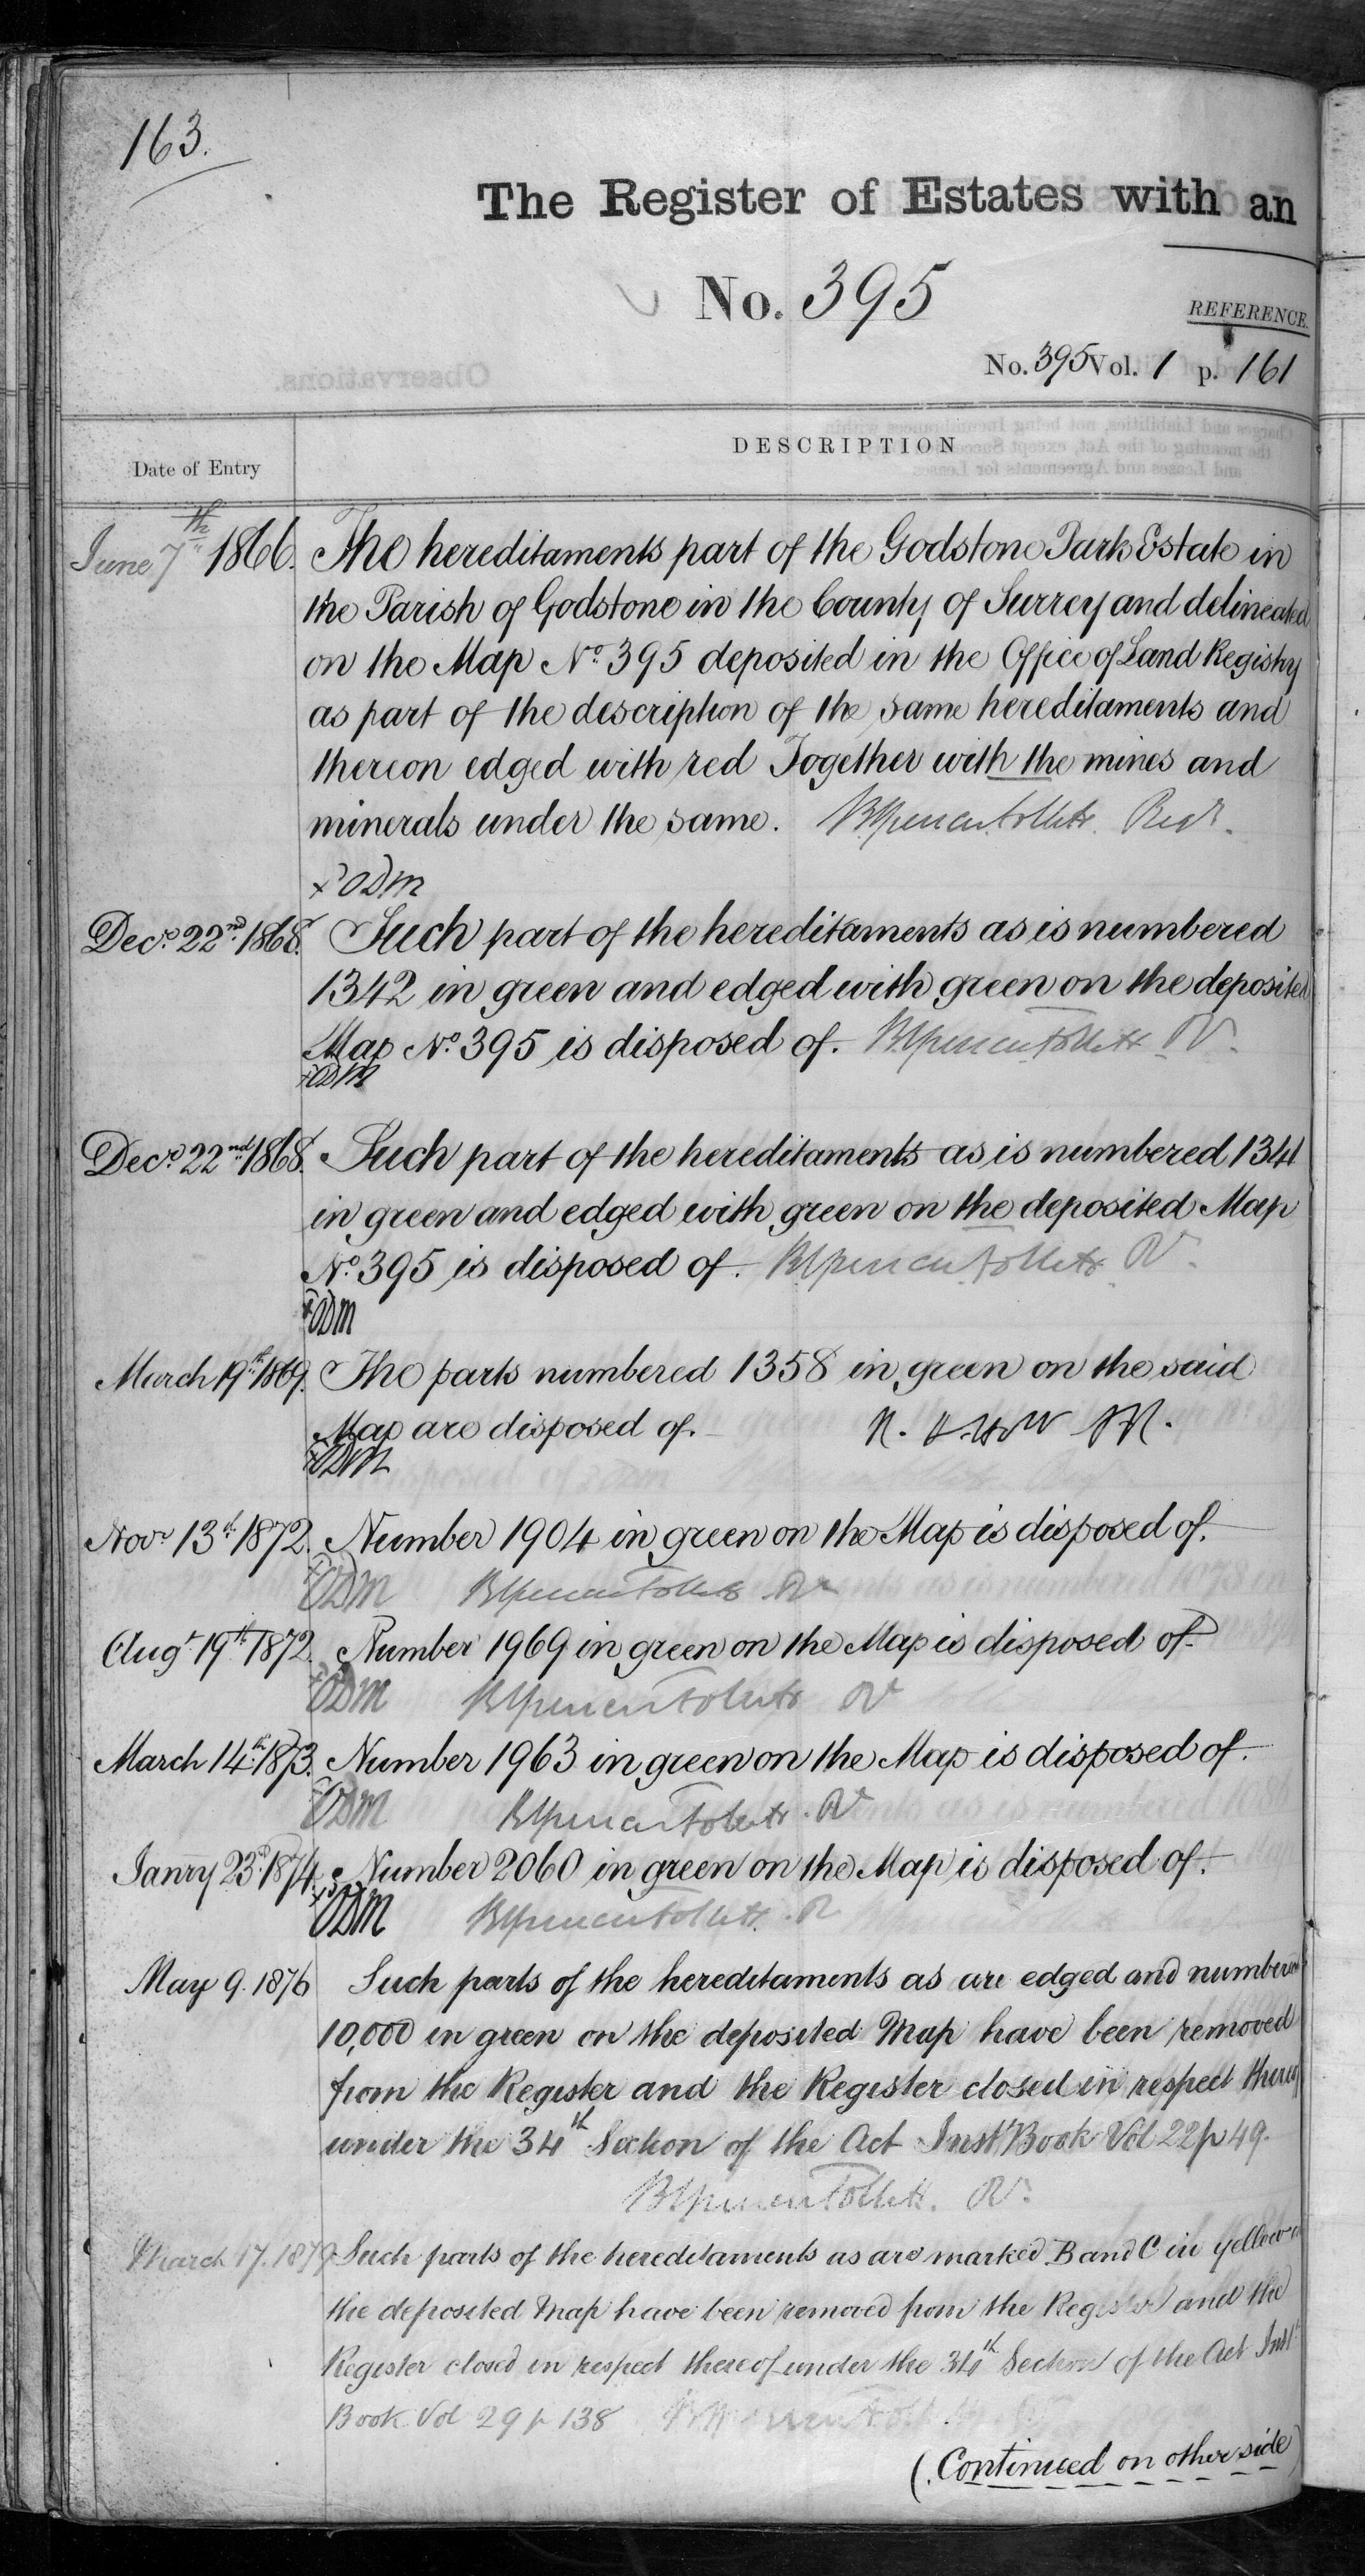 163.
The Register of Estates with an
No. 395
REFERENCE.
No. 395 Vol. 1 p. 161
Date of Entry
DESCRIPTION
June 7th 1866. The hereditaments part of the Godstone Park Estate in
the Parish of Godstone in the County of Surrey and delineated
on the Map No. 395 deposited in the Office of Land Registry
as part of the description of the same hereditaments and
thereon edged with red Together with the mines and
minerals under the same.
+ ODM
Decr. 22nd. 1868. Such part of the hereditaments as is numbered
1342 in green and edged with green on the deposited
Map No. 395 is disposed of.
+ ODM
Decr. 22nd. 1868. Such part of the hereditaments as is numbered 1341
in green and edged with green on the deposited Map
No. 395 is disposed of.
+ ODM
March 19th. 1869. The parts numbered 1358 in green on the said
Map are disposed of.
+ ODM
Novr. 13th. 1872. Number 1904 in green on the Map is disposed of.
+ ODM
Augt. 19th. 1872. Number 1969 in green on the Map is disposed of.
+ ODM
March 14th. 1873. Number 1963 in green on the Map is disposed of.
+ ODM
Janry 23d. 1874. Number 2060 in green on the Map is disposed of.
+ ODM
May 9. 1876 Such parts of the hereditaments as are edged and numbered
10,000 in green on the deposited Map have been removed
from the Register and the Register closed in respect thereof
under the 34th Section of the Act Inst. Book Vol 22 p 49.
March 17. 1879 Such parts of the hereditaments as are marked B and C in yellow on
the deposited Map have been removed from the Register and the
Register closed in respect thereof under the 34th Section of the Act Inst
Book Vol 29 p 138
(Continued on other side)